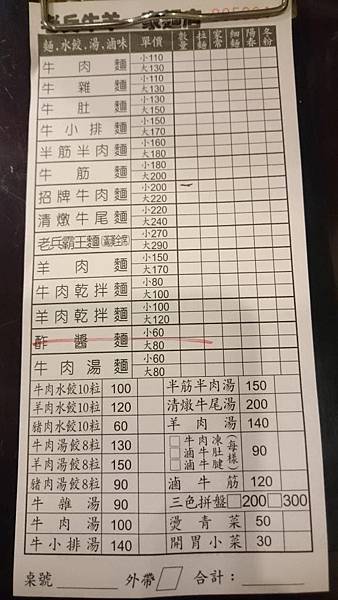 麵.水餃.湯.滷味 單價 數量 拉麵 家常 細麵 陽春 冬粉
牛肉麵 小110 大130
牛雜麵 小110 大130
牛肚麵 小110 大130
牛小排麵 小150 大170
半筋半肉麵 小160 大180
牛筋麵 小180 大200
招牌牛肉麵 小200 大220
清燉牛尾麵 小220 大240
老兵霸王麵(滿漢全席) 小270 大290
羊肉麵 小150 大170
牛肉乾拌麵 小80 大100
羊肉乾拌麵 小100 大120
酢醬麵 小60 大80
牛肉湯麵 小60 大80
牛肉水餃10粒 100 半筋半肉湯 150
羊肉水餃10粒 120 清燉牛尾湯 200
豬肉水餃10粒 60 羊肉湯 140
牛肉湯餃8粒 130 □牛肉凍 □滷牛肚 □滷牛腱 (每樣) 90
羊肉湯餃8粒 150
豬肉湯餃8粒 90 滷牛筋 120
牛雜湯 90 三色拼盤 □200 □300
牛肉湯 100 燙青菜 50
牛小排湯 140 開胃小菜 30
桌號 外帶 合計：